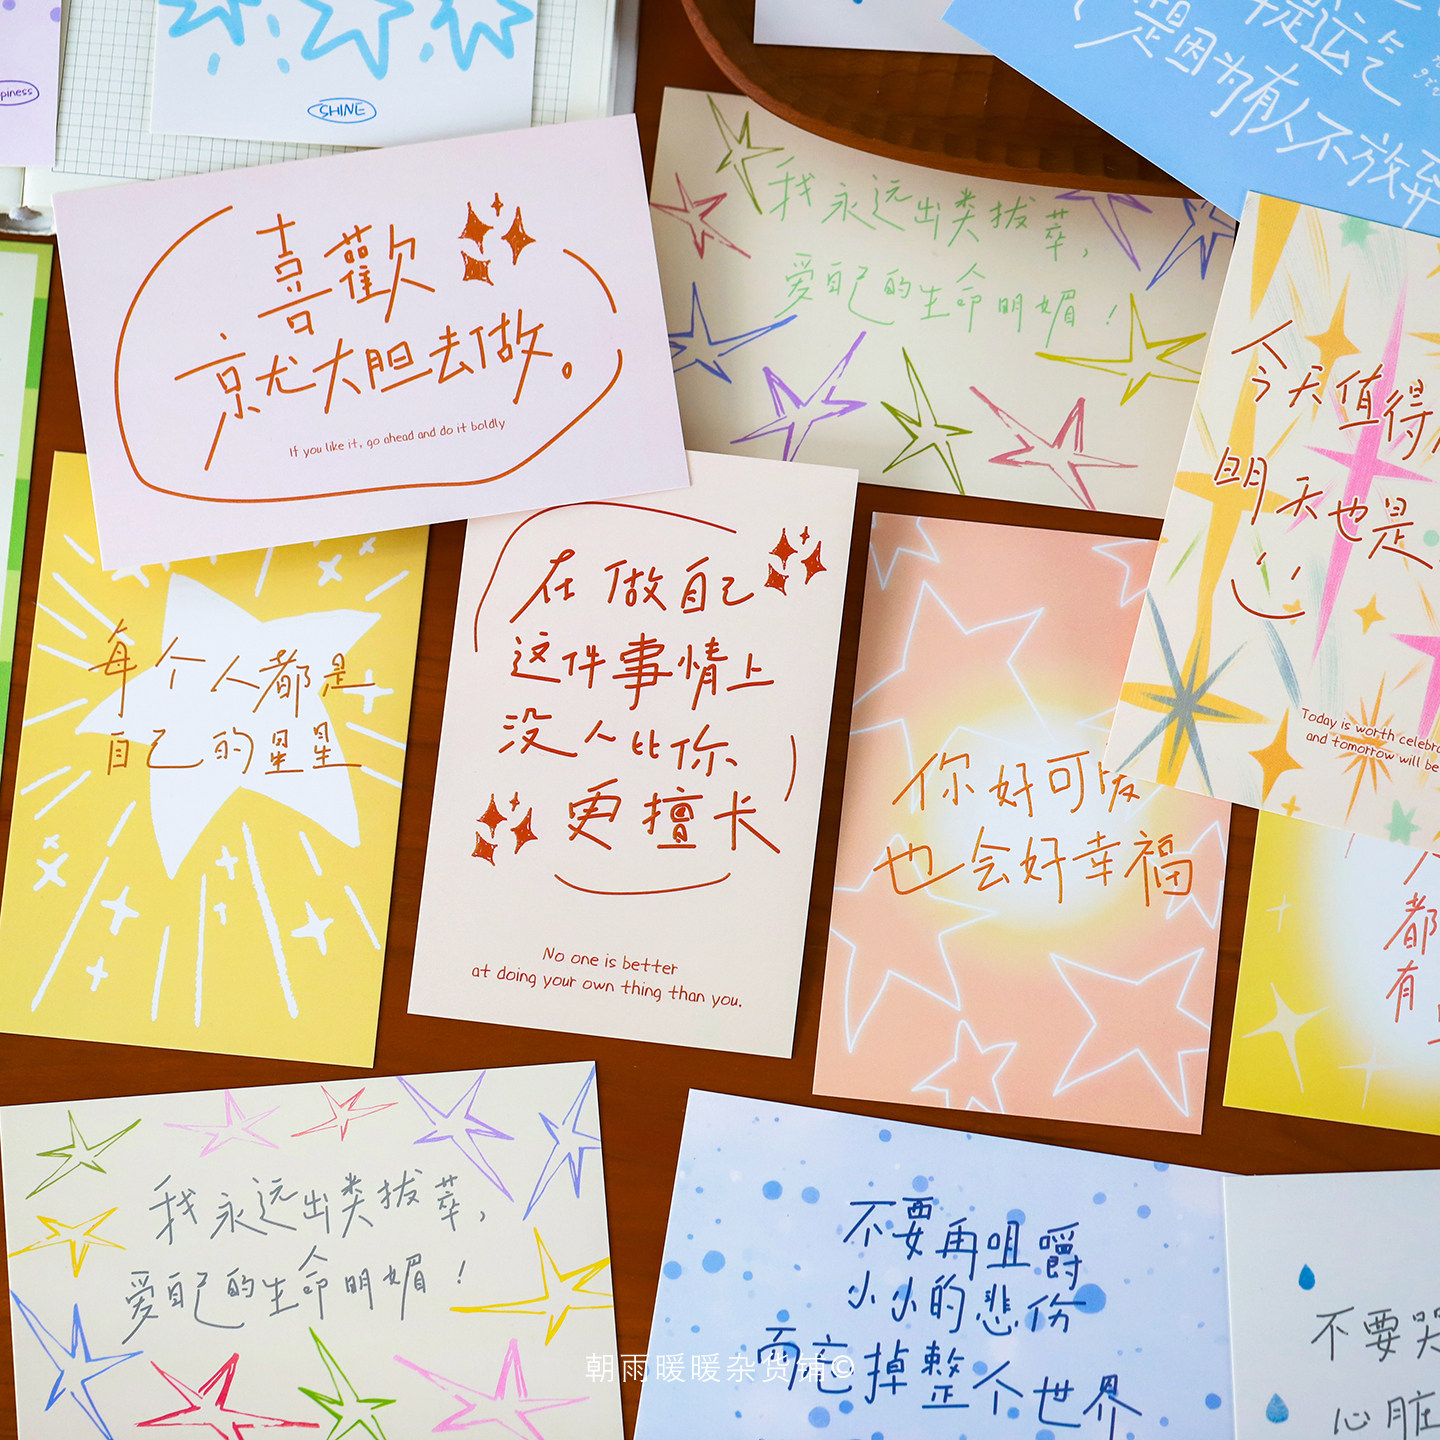 piness
SHINE
是运气
是因为有人不放弃
喜歡
就大胆去做。
If you like it, go ahead and do it boldly
我永远出类拔萃,
爱自己的生命明媚!
今天值得
明天也是
Today is worth celebra
and tomorrow will be
每个人都是
自己的星星
在做自己
这件事情上
没人比你
更擅长
No one is better
at doing your own thing than you.
你好可爱
也会好幸福
都
有
我永远出类拔萃,
爱自己的生命明媚!
不要再咀嚼
小小的悲伤
而忘掉整个世界
不要哭
心脏
朝雨暖暖杂货铺©